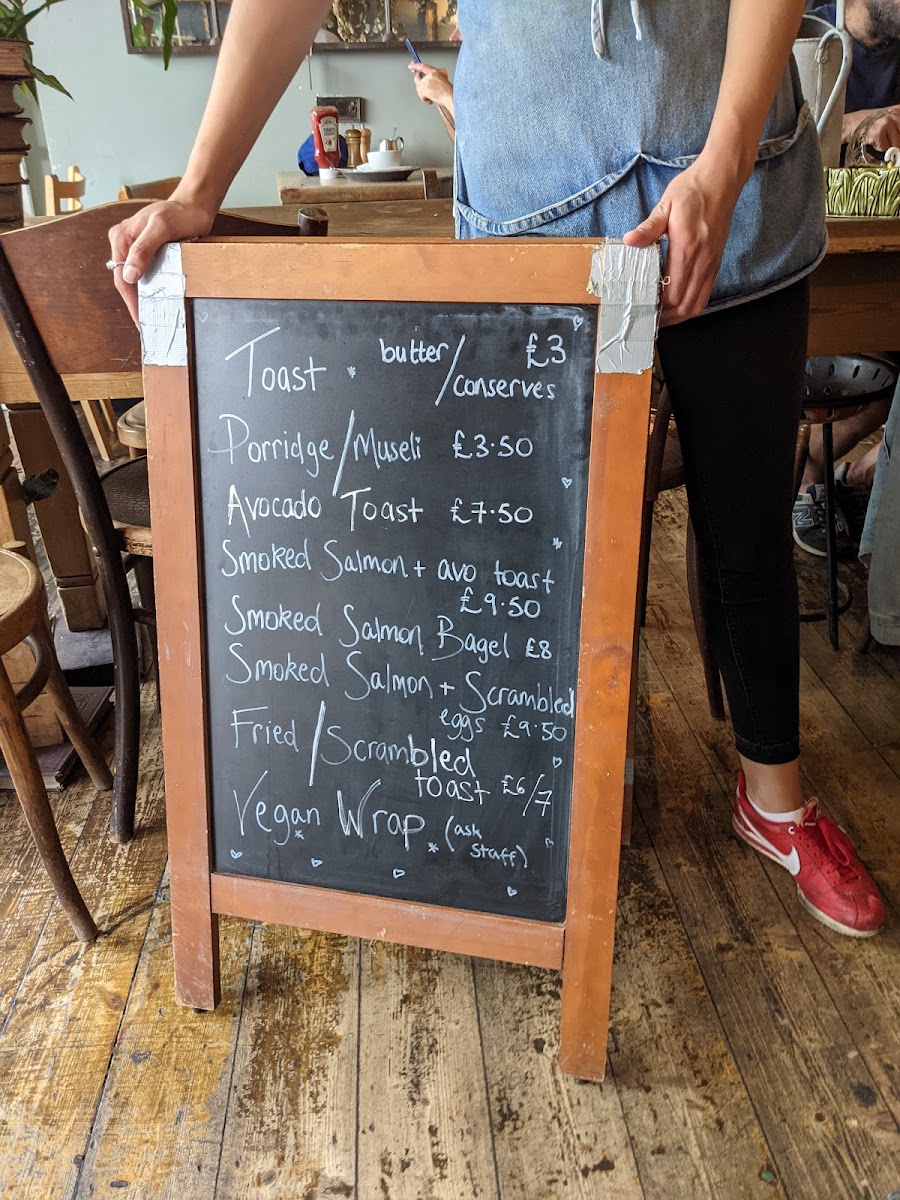 Toast * butter/conserves £3
Porridge/Museli £3.50
Avocado Toast £7.50
Smoked Salmon + avo toast
£9.50
Smoked Salmon Bagel £8
Smoked Salmon + Scrambled
eggs £9.50
Fried/Scrambled
toast £6/7
Vegan Wrap * (ask
staff)